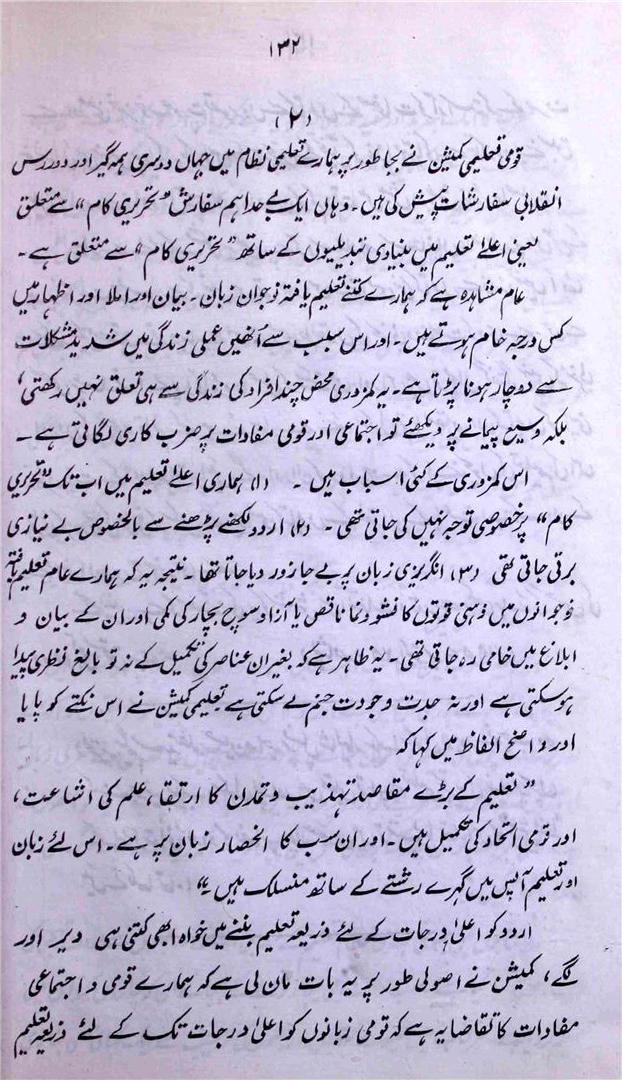 ۱۳۲
(۲)
قومی تعلیمی کمیشن نے بجا طور پر ہمارے تعلیمی نظام میں جہاں دوسری ہمہ گیر اور دور رس
انقلابی سفارشات پیش کی ہیں۔ وہاں ایک بے حد اہم سفارش "تحریری کام" سے متعلق
یعنی اعلیٰ تعلیم میں بنیادی تبدیلیوں کے ساتھ "تحریری کام" سے متعلق ہے۔
عام مشاہدہ ہے کہ ہمارے کتنے تعلیم یافتہ نوجوان زبان۔ بیان اور املا اور اظہار میں
کس درجہ خام ہوتے ہیں۔ اور اس سبب سے اُنھیں عملی زندگی میں شدید مشکلات
سے دوچار ہونا پڑتا ہے۔ یہ کمزوری محض چند افراد کی زندگی سے ہی تعلق نہیں رکھتی،
بلکہ وسیع پیمانے پر دیکھئے تو اجتماعی اور قومی مفادات پر ضرب کاری لگاتی ہے۔
اس کمزوری کے کئی اسباب ہیں۔ (۱) ہماری اعلےٰ تعلیم میں اب تک "تحریری
کام" پر خصوصی توجہ نہیں کی جاتی تھی۔ (۲) اردو لکھنے پڑھنے سے بالخصوص بے نیازی
برتی جاتی تھی (۳) انگریزی زبان پر بے جا زور دیا جاتا تھا۔ نتیجہ یہ کہ ہمارے عام تعلیم یافتہ
نوجوانوں میں ذہنی قوتوں کا نشو و نما ناقص یا آزاد سوچ بچار کی کمی اور ان کے بیان و
ابلاغ میں خامی رہ جاتی تھی۔ یہ ظاہر ہے کہ بغیر ان عناصر کی تکمیل کے نہ تو بالغ نظری پیدا
ہوسکتی ہے اور نہ جدت و جودت جنم لے سکتی ہے تعلیمی کمیشن نے اس نکتے کو پا یا
اور واضح الفاظ میں کہا کہ
"تعلیم کے بڑے مقاصد تہذیب و تمدن کا ارتقا، علم کی اشاعت،
اور قومی اتحاد کی تکمیل ہیں۔ اور ان سب کا انحصار زبان پر ہے۔ اس لئے زبان
اور تعلیم آپس میں گہرے رشتے کے ساتھ منسلک ہیں۔"
اردو کو اعلیٰ درجات کے لئے ذریعہ تعلیم بننے میں خواہ ابھی کتنی ہی دیر اور
لگے، کمیشن نے اصولی طور پر یہ بات مان لی ہے کہ ہمارے قومی و اجتماعی
مفادات کا تقاضا یہ ہے کہ قومی زبانوں کو اعلیٰ درجات تک کے لئے ذریعہ تعلیم